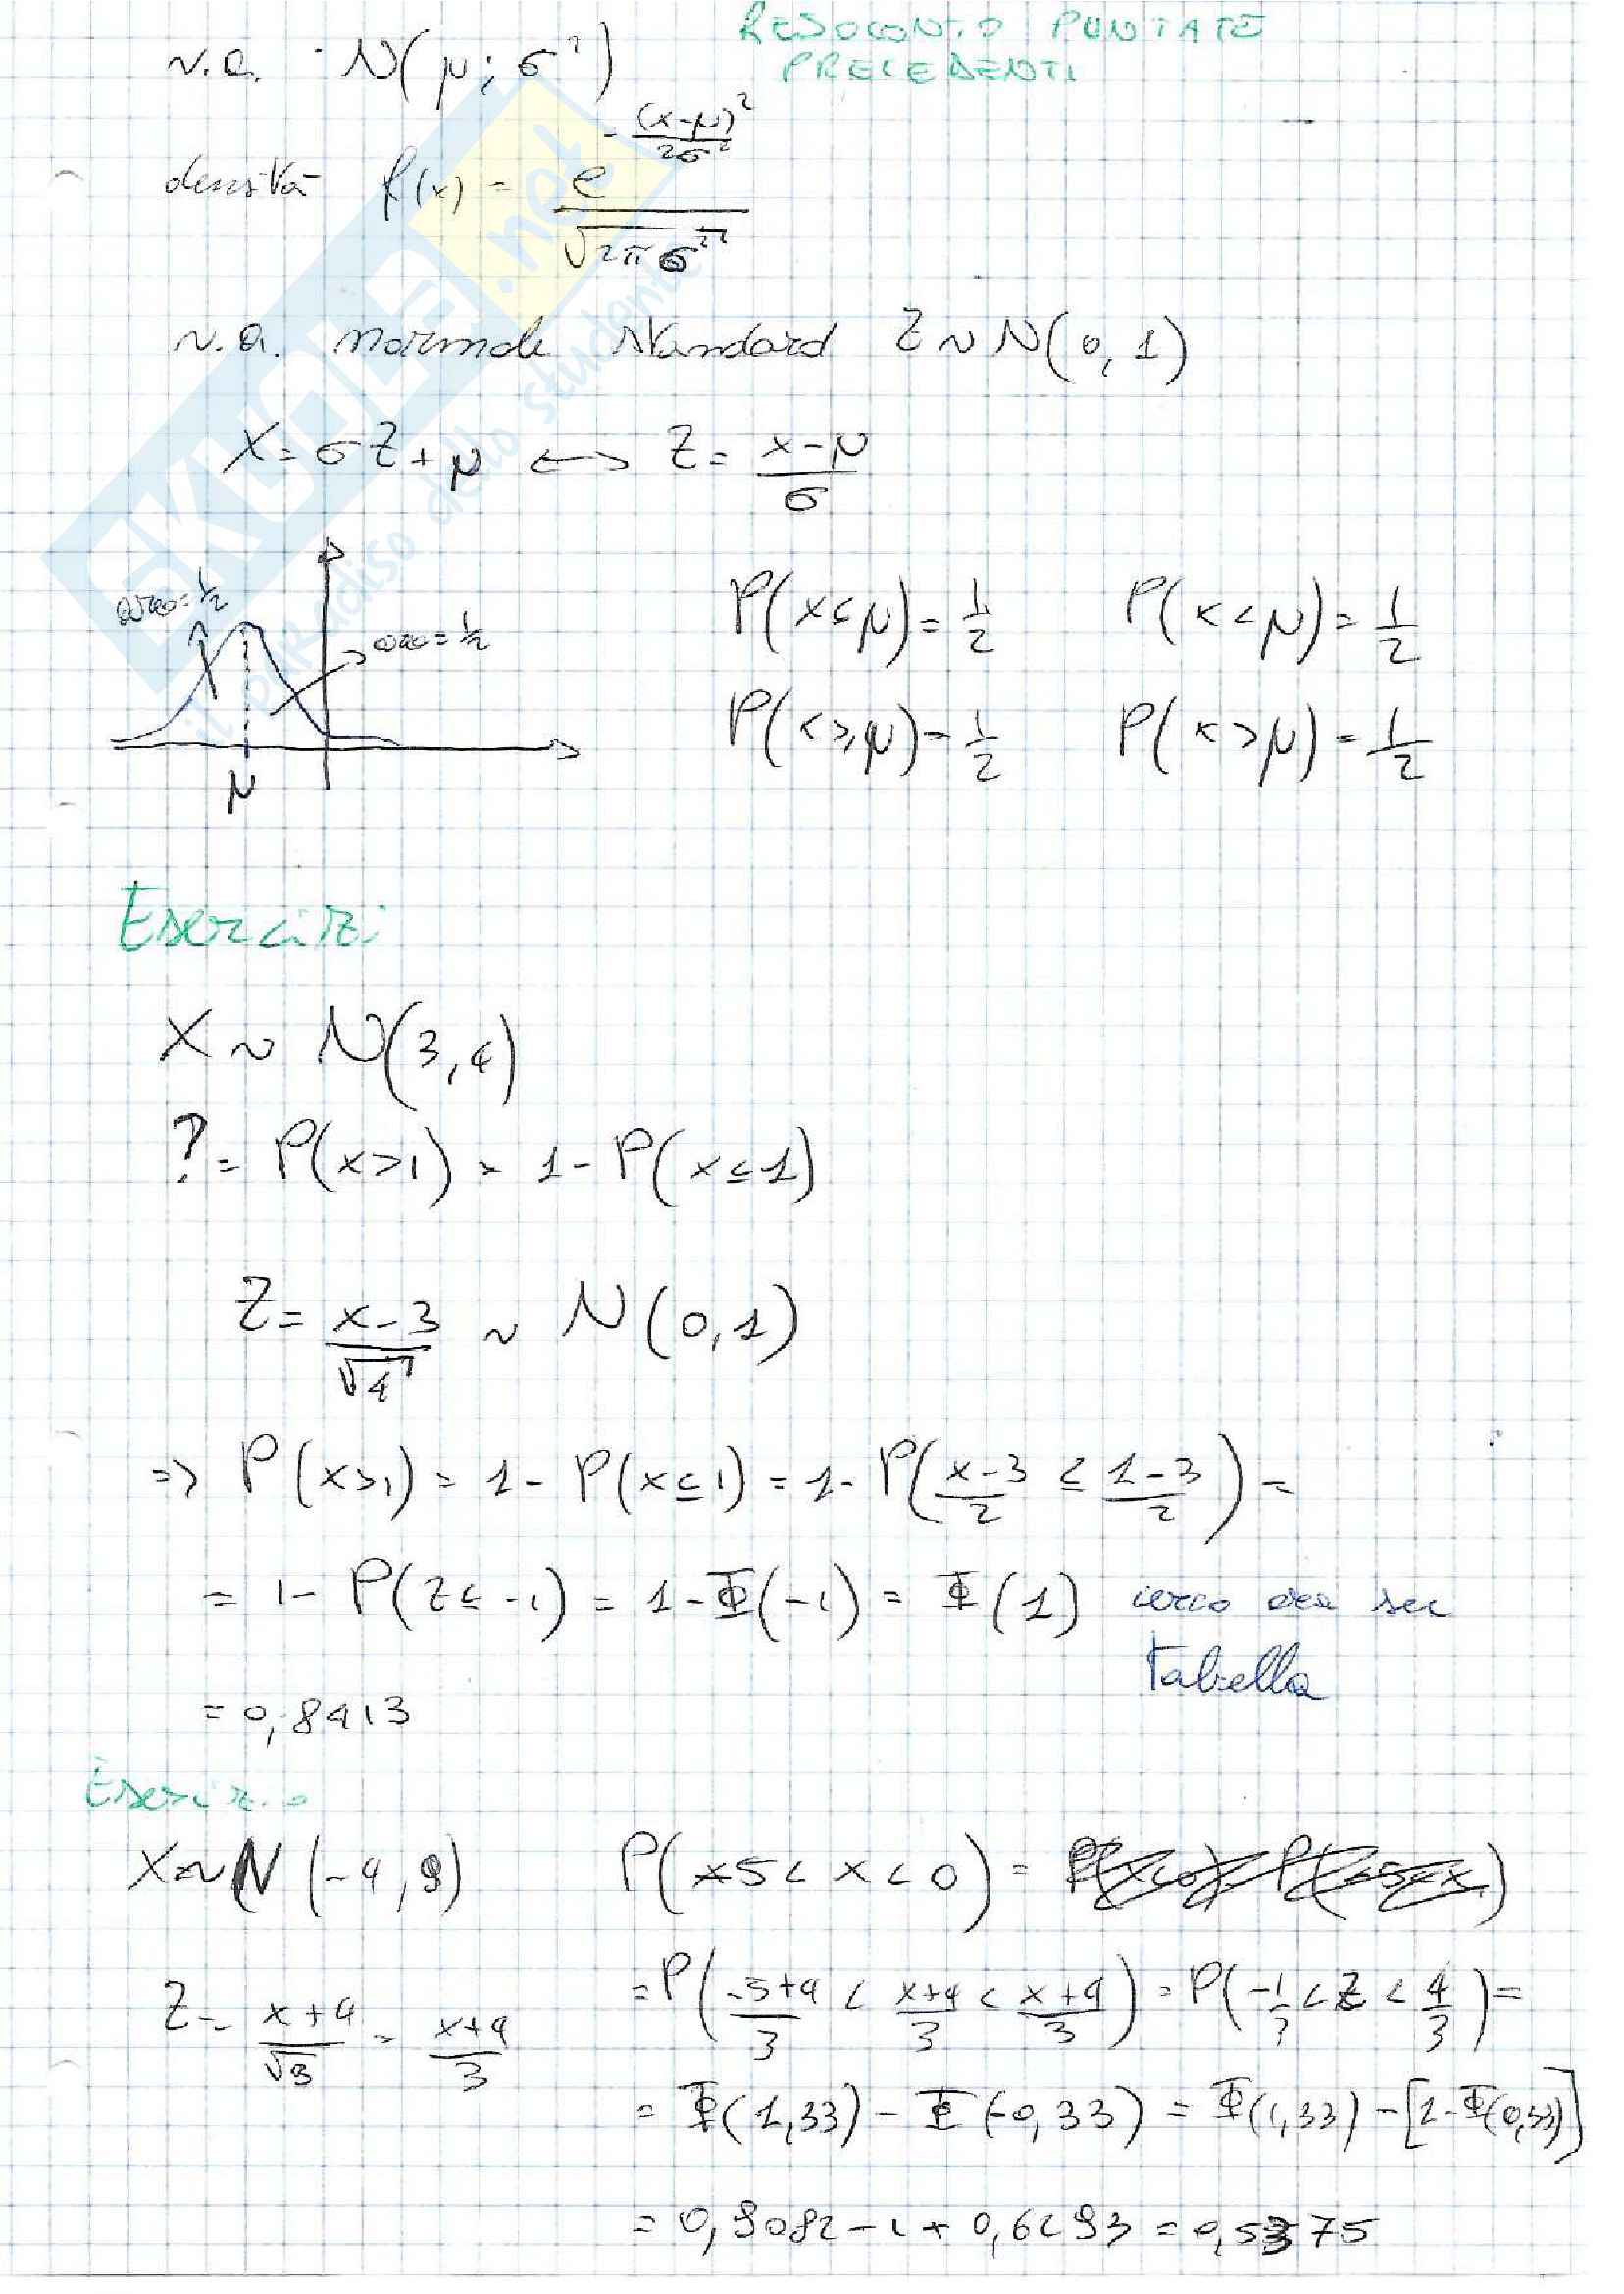 RESOCONTO PUNTATE
PRECEDENTI
v.a. N(μ; σ²)
densità f(x) = e^(-(x-μ)²/2σ²) / √(2πσ²)
v.a. normale standard Z ~ N(0,1)
X = σZ + μ ↔ Z = (x-μ)/σ
area = 1/2
area = 1/2
μ
P(x≤μ) = 1/2 P(x<μ) = 1/2
P(x≥μ) = 1/2 P(x>μ) = 1/2
Esercizi
X ~ N(3,4)
? = P(x>1) = 1 - P(x≤1)
Z = (x-3)/√4 ~ N(0,1)
=> P(x>1) = 1 - P(x≤1) = 1 - P((x-3)/2 ≤ (1-3)/2) =
= 1 - P(Z≤-1) = 1 - Φ(-1) = Φ(1) cerco ora su
tabella
= 0,8413
Esercizio
X ~ N(-4,9) P(-5<x<0) =
Z = (x+4)/√3 = (x+4)/3
= P((-5+4)/3 < (x+4)/3 < (x+4)/3) = P(-1/3 < Z < 4/3) =
= Φ(1,33) - Φ(-0,33) = Φ(1,33) - [1 - Φ(0,33)]
= 0,9082 - 1 + 0,6293 = 0,5375
SKUOLA.net
il paradiso dello studente